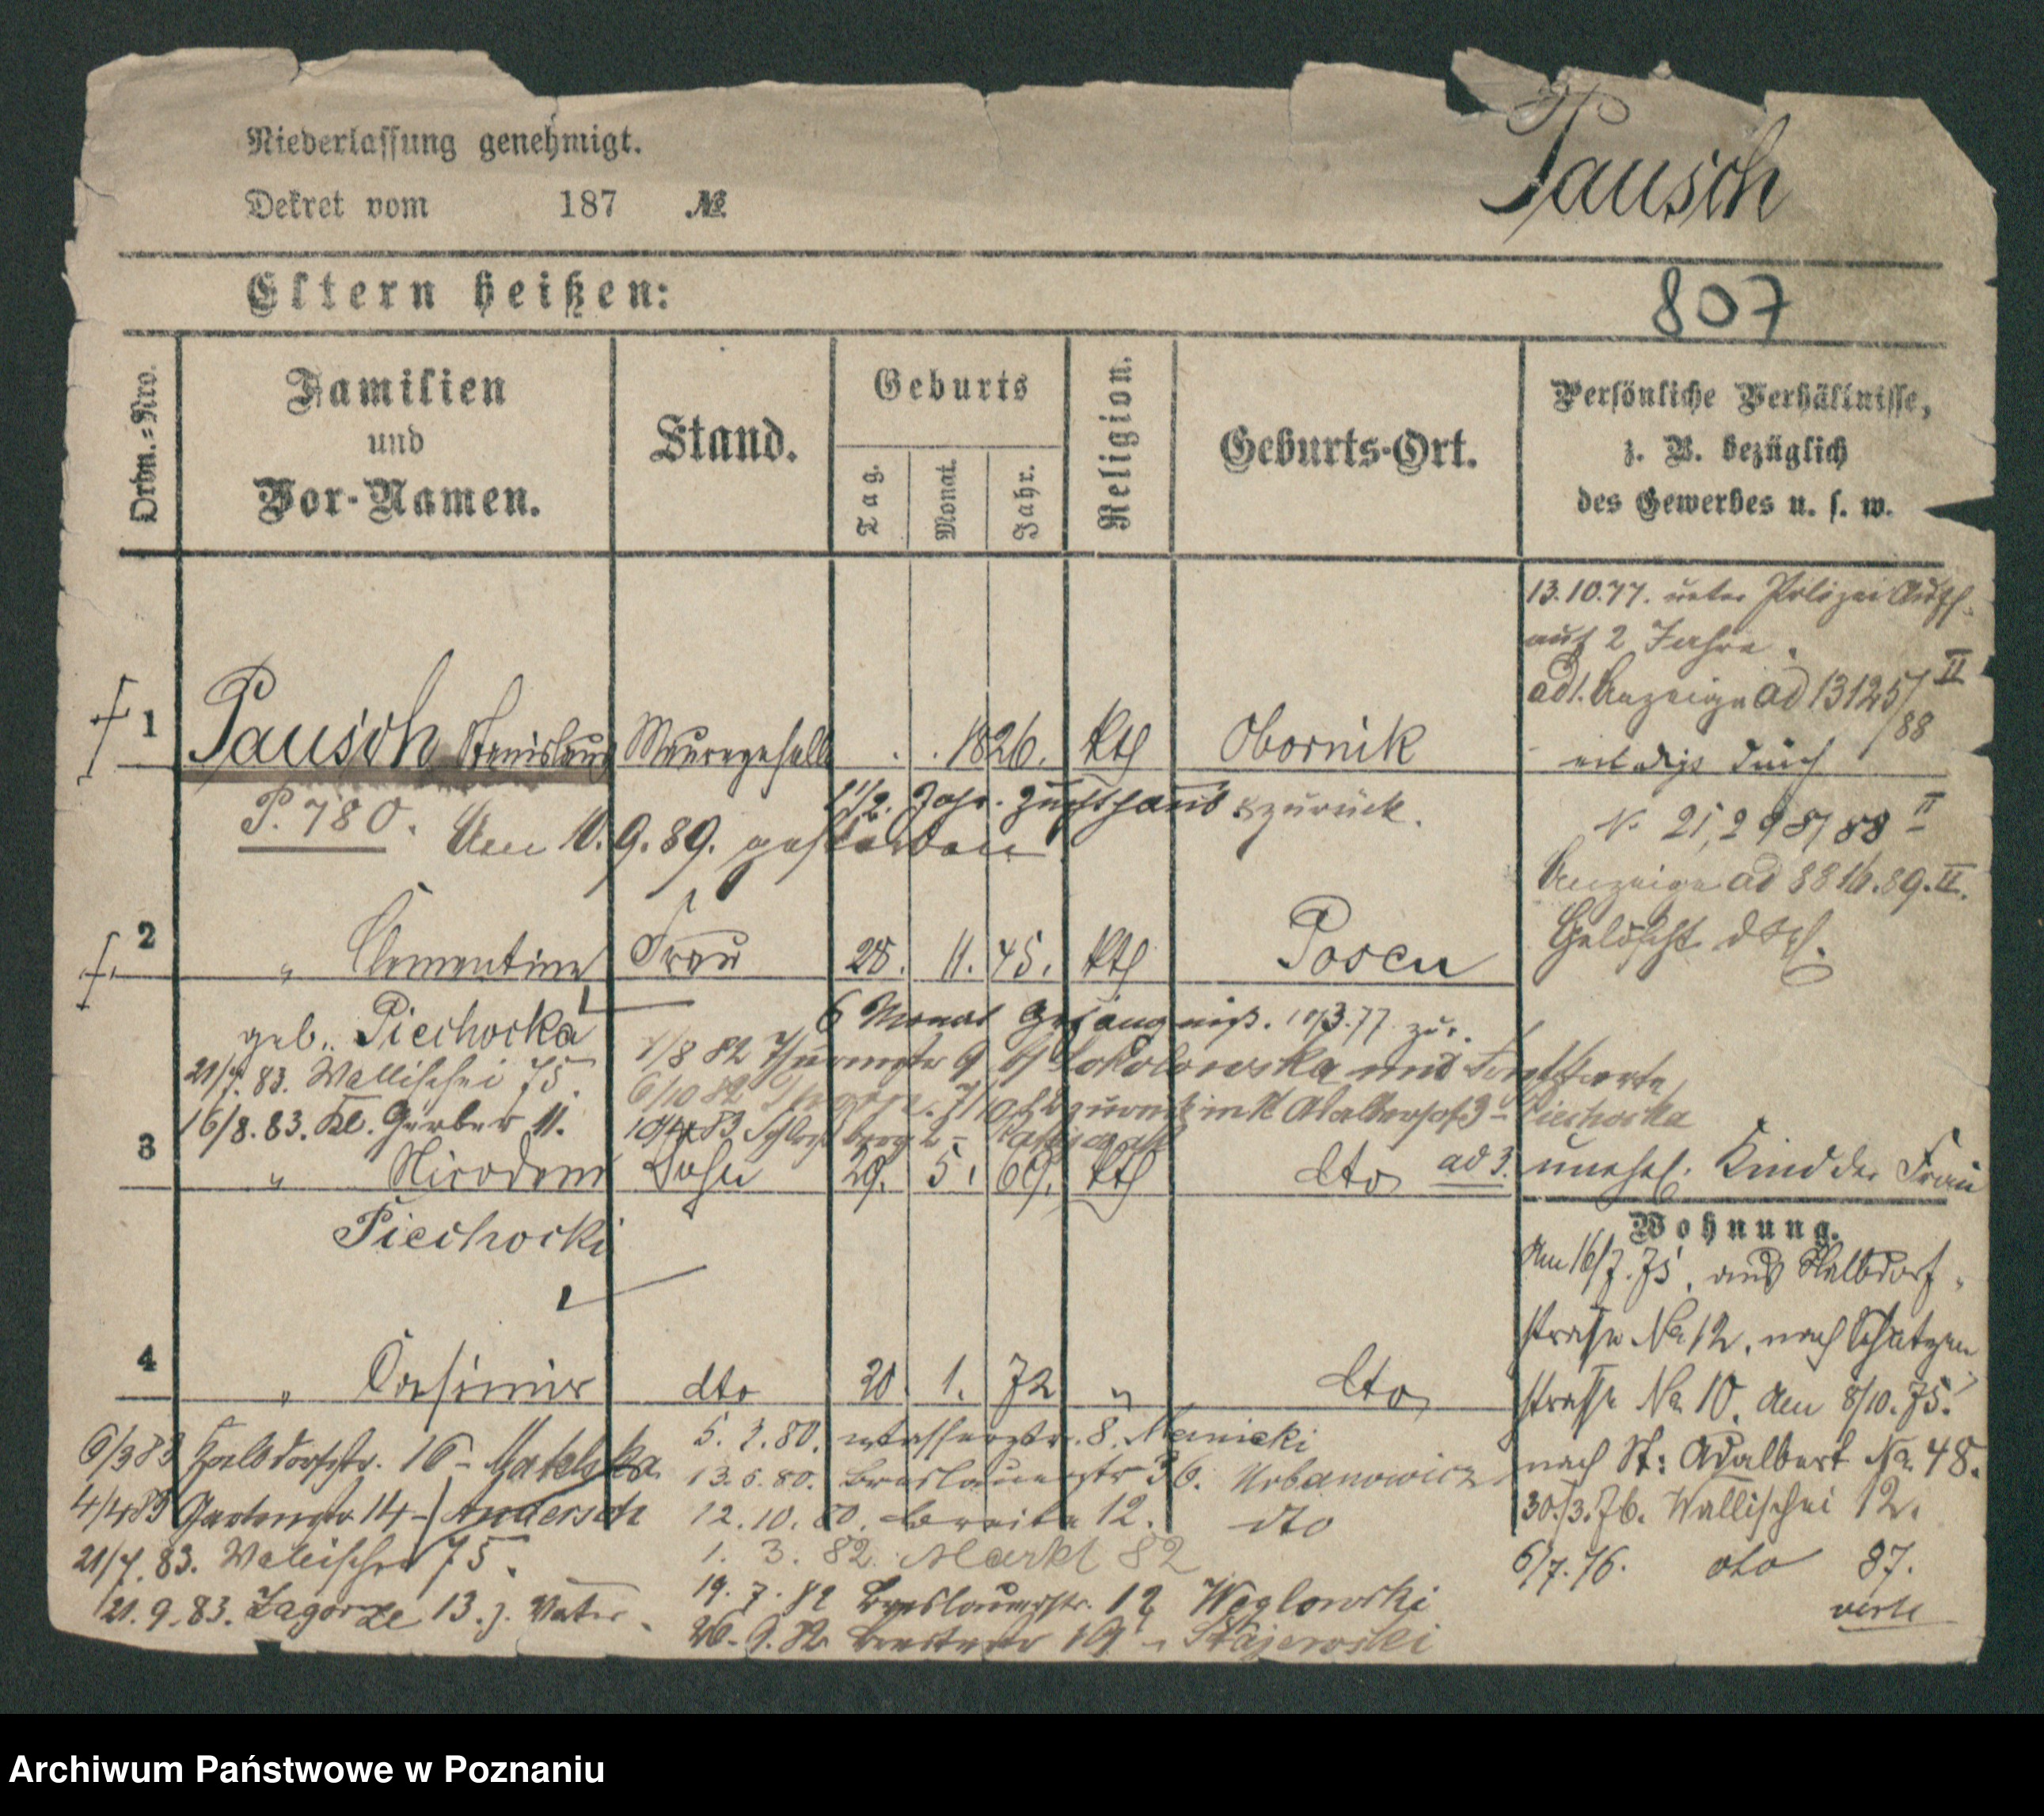 Niederlassung genehmigt.
Dekret vom 187 №
Pausch
Eltern heißen:
807
Ordn.=Nro.
Familien
und
Vor-Namen.
Stand.
Geburts
Tag.
Monat.
Jahr.
Religion.
Geburts-Ort.
Persönliche Verhältnisse,
z. B. bezüglich
des Gewerbes u. s. w.
13.10.77. unter Polizei Aufs.
auf 2 Jahre.
ad 1. Anzeige ad 13125/88 II
erledigt durch
N. 21,298/88 II
Anzeige ad 8816.89.II.
Gelöscht
1 Pausch Stanislaus Maurergeselle 1826. kth Obornik
P. 780. Am 10.9.89. gestorben
1/2. Jahr. Zuchthaus zurück.
2 " Clementine Frau 28. 11. 45. kth Posen
geb. Piechocka
6 Monat Gefängniß. 10/3.77 zur.
21/7.83. Wallischei 75.
1/8 82 Thurmstr 9 b/ Sokolowska und
16/8.83. Kl. Gerber 11.
6/10 82 7/10 82 zurück in St Adalbert 3 - Piechocka
10/4 83 Schloßberg 2 -
3 " Nicodem Sohn 29. 5. 69. kth dto ad 3. unehel. Kind der Frau
Piechocki
4 " Casimir dto 20 1. 72 " dto
Wohnung.
Am 16/7.75. aus Halbdorf-
straße No 12. nach Schützen
straße No 10. Am 8/10.75.
nach St: Adalbert No. 48.
30./3.76. Wallischei 12.
6/7.76. dto 87.
verte
6/3 83 Halbdorfstr. 16 -
4/4 83 Gartenstr 14 - Andersch
21/7.83. Wallischei 75.
21.9.83. Zagorze 13. z. Vater.
5. 2.80. Wasserstr. 8. Manicki
13.5.80. Breslauerstr 36. Urbanowicz
12.10.80. Breite 12. dto
1. 3. 82. Markt 82
19. 7. 82 Breslauerstr. 12 Weglowski
26. 9. 82 Breitestr 19 - Stajewski
Archiwum Państwowe w Poznaniu